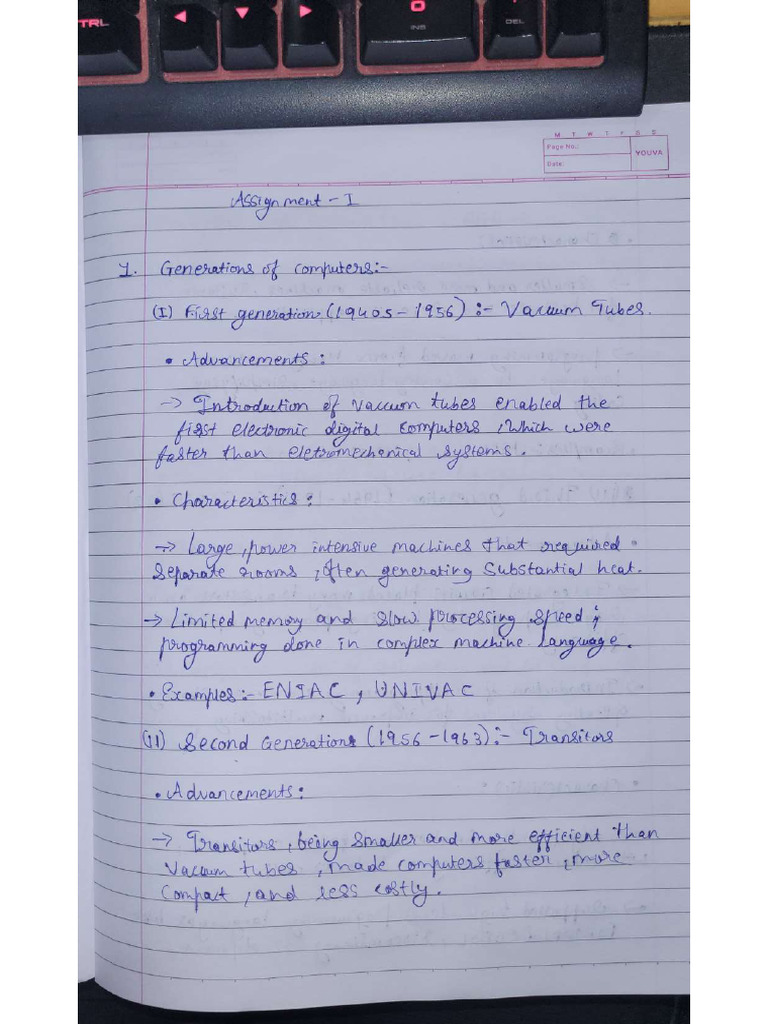 CTRL
0
INS
DEL
M T W T F S S
Page No.:
YOUVA
Date:
Assignment - I
1. Generations of computers:-
(I) First generation (1940s - 1956) :- Vacuum Tubes.
• Advancements :
-> Introduction of vaccum tubes enabled the
first electronic digital computers, which were
faster than eletromechenical systems.
• Characteristics :
-> Large, power intensive machines that required
separate rooms, often generating substantial heat.
-> Limited memory and slow processing speed ;
programming done in complex machine language.
• Examples :- ENIAC, UNIVAC
(II) Second Generation (1956 - 1963) :- Transitors
• Advancements :
-> Transitors, being smaller and more efficient than
vaccum tubes, made computers faster, more
compact, and less costly.